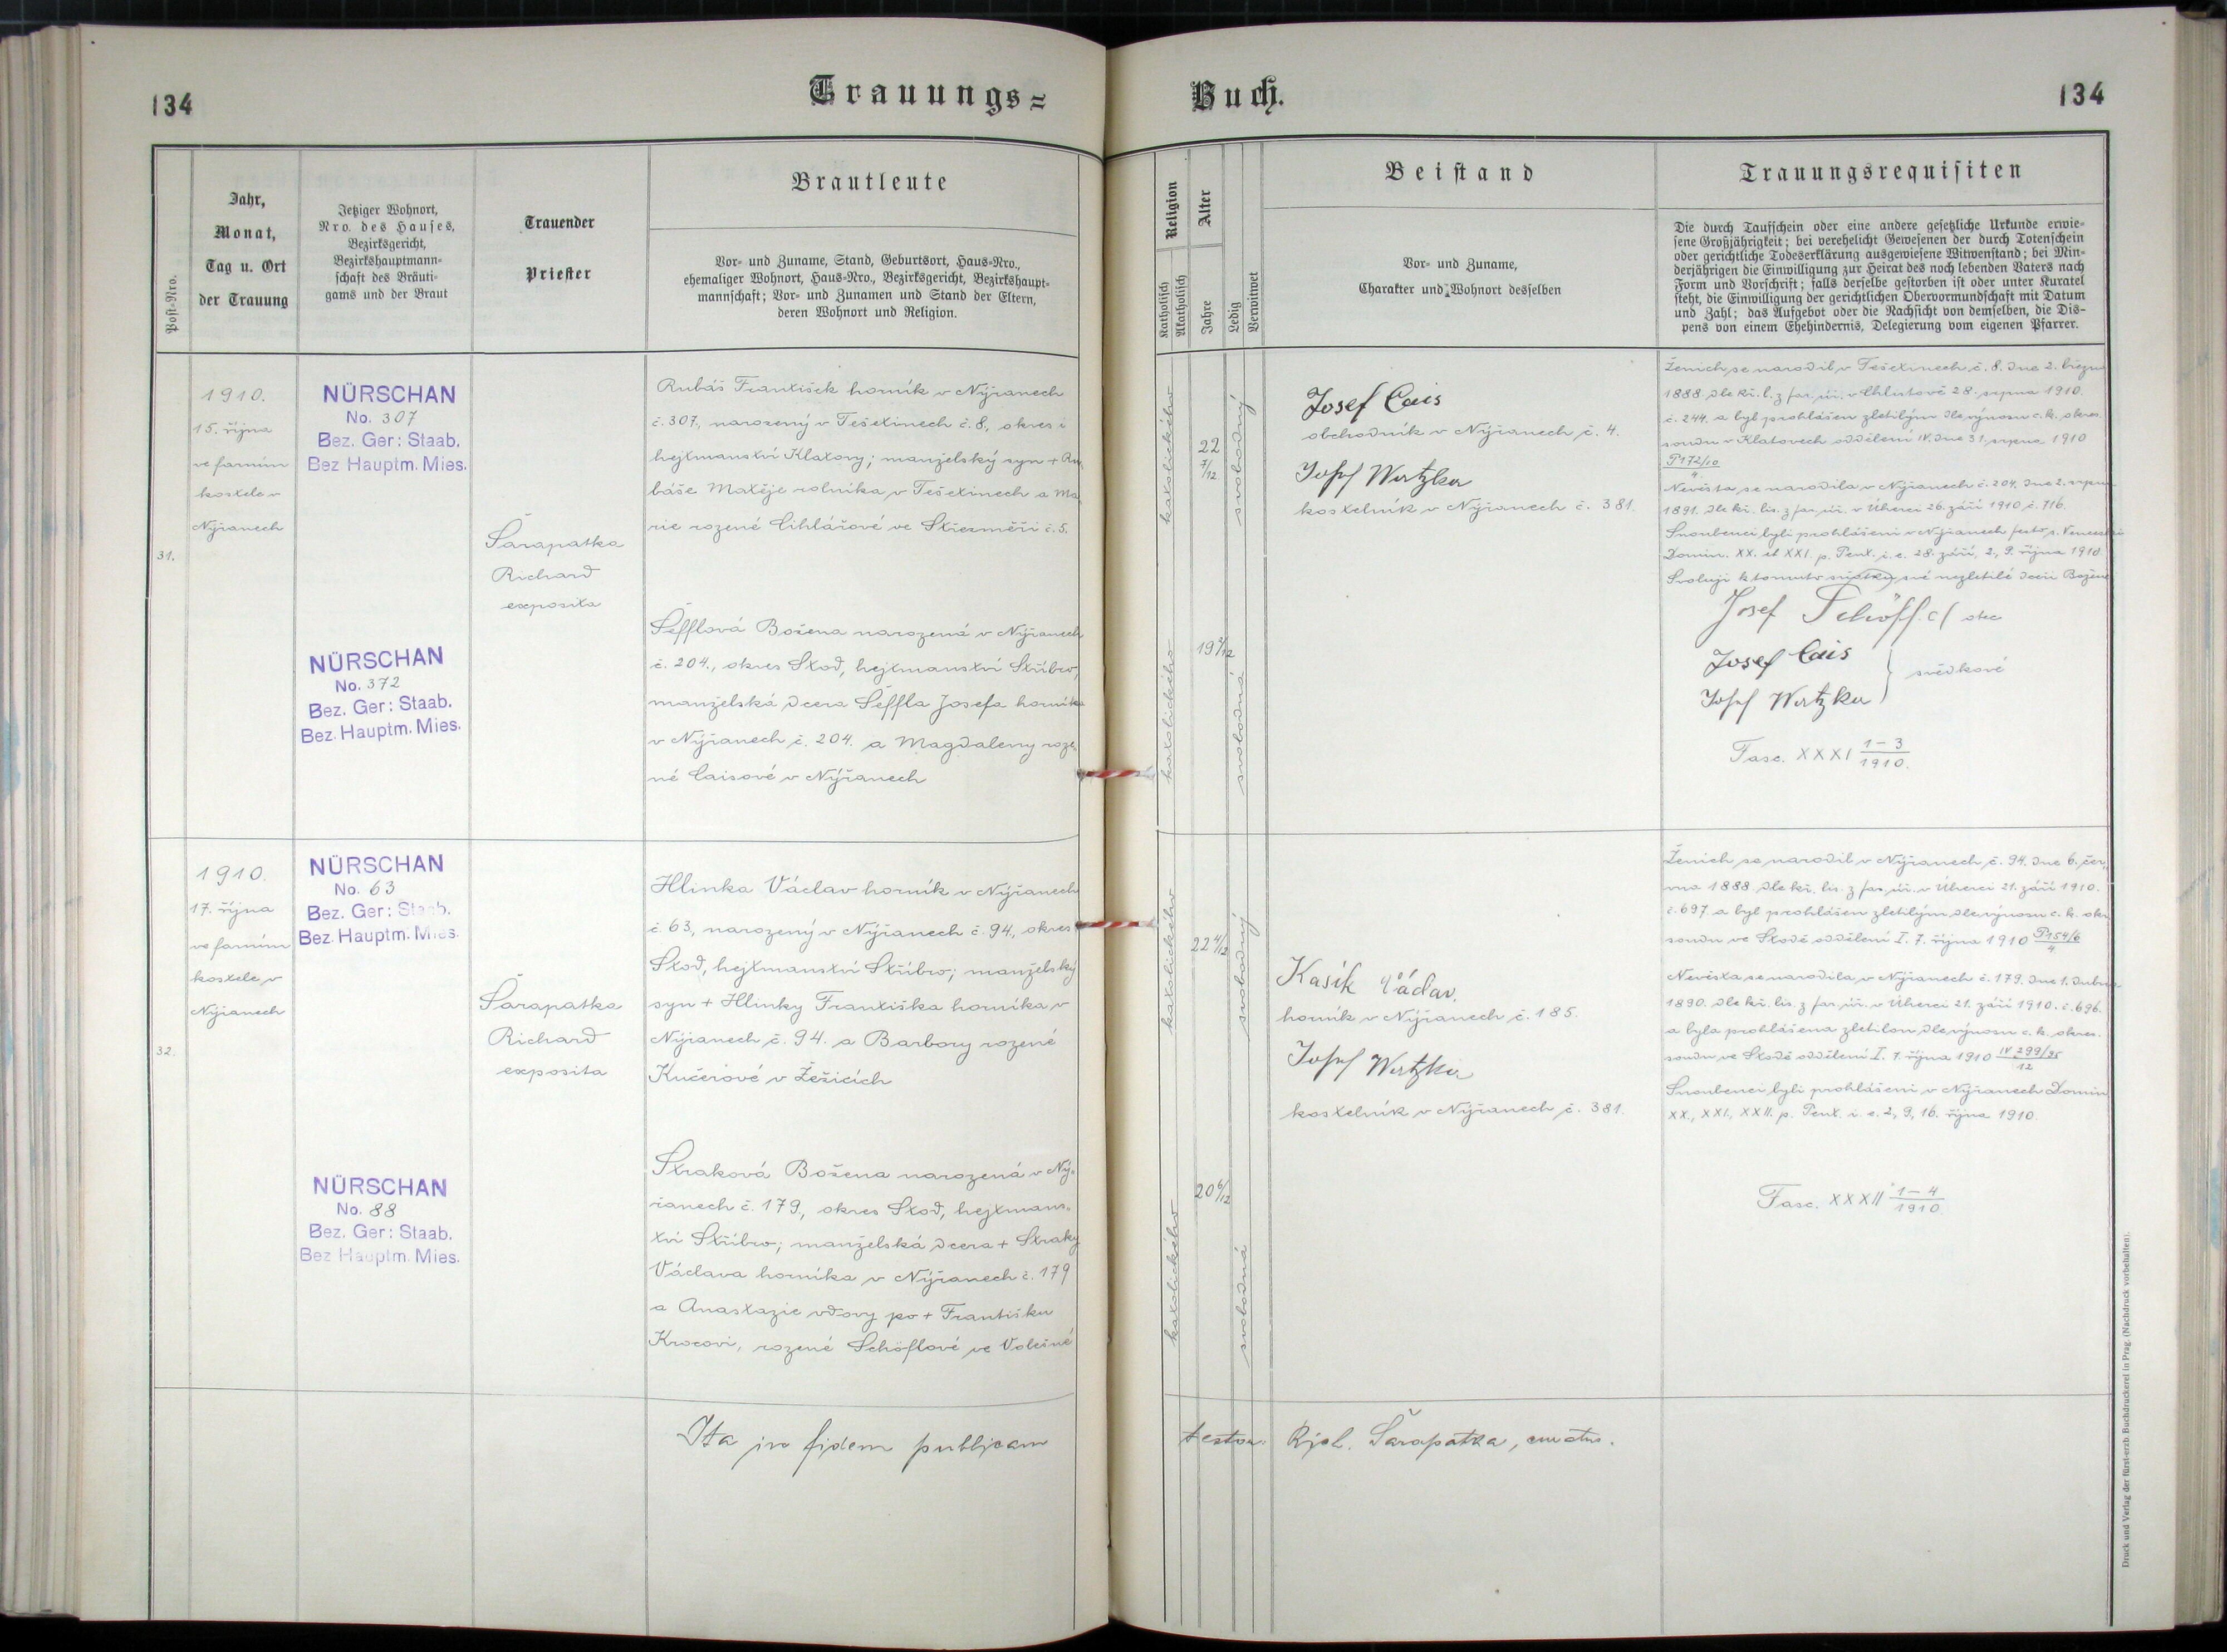 134
Trauungs=
Buch.
134
Post-Nro.
Jahr,
Monat,
Tag u. Ort
der Trauung
Jetziger Wohnort,
Nro. des Hauses,
Bezirksgericht,
Bezirkshauptmann-
schaft des Bräuti-
gams und der Braut
Trauender
Priester
Brautleute
Vor- und Zuname, Stand, Geburtsort, Haus-Nro.,
ehemaliger Wohnort, Haus-Nro., Bezirksgericht, Bezirkshaupt-
mannschaft; Vor- und Zunamen und Stand der Eltern,
deren Wohnort und Religion.
Religion
Katholisch
Akatholisch
Alter
Jahre
Ledig
Verwitwet
Beistand
Vor- und Zuname,
Charakter und Wohnort desselben
Trauungsrequisiten
Die durch Taufschein oder eine andere gesetzliche Urkunde erwie-
sene Großjährigkeit; bei verehelicht Gewesenen der durch Totenschein
oder gerichtliche Todeserklärung ausgewiesene Witwenstand; bei Min-
derjährigen die Einwilligung zur Heirat des noch lebenden Vaters nach
Form und Vorschrift; falls derselbe gestorben ist oder unter Kuratel
steht, die Einwilligung der gerichtlichen Obervormundschaft mit Datum
und Zahl; das Aufgebot oder die Nachsicht von demselben, die Dis-
pens von einem Ehehindernis, Delegierung vom eigenen Pfarrer.
31.
1910.
15. října
ve farním
kostele v
Nýřanech
NÜRSCHAN
No. 307
Bez. Ger: Staab.
Bez Hauptm. Mies.
NÜRSCHAN
No. 372
Bez. Ger: Staab.
Bez. Hauptm. Mies.
Šarapatka
Richard
exposita
Rubáš František horník v Nýřanech
č. 307, narozený v Tešetinech č. 8, okres i
hejtmanství Klatovy; manželský syn + Ru,
báše Matěje rolníka v Tešetinech a Ma,
rie rozené Cihlářové ve Střezměři č. 5.
Šefflová Božena narozená v Nýřanech
č. 204., okres Stod, hejtmanství Stříbro,
manželská dcera Šeffla Josefa horníka
v Nýřanech č. 204. a Magdaleny roze,
né Caisové v Nýřanech
katolického
22
7/12
svobodný
katolického
19 2/12
svobodná
Josef Cais
obchodník v Nýřanech č. 4.
Josef Wertzka
kostelník v Nýřanech č. 381.
Ženich se narodil v Tešetinech č. 8. dne 2. března
1888 dle kř. l. z far. úř. v Chlistově 28. srpna 1910.
č. 244. a byl prohlášen zletilým dle výnosu c. k. okres.
soudu v Klatovech oddělení IV. dne 31. srpna 1910
P172/10
4.
Nevěsta se narodila v Nýřanech č. 204. dne 2. srpna
1891. dle kř. lis. z far. úř. v Úherci 26. září 1910 č. 716.
Snoubenci byli prohlášeni v Nýřanech festo s. Venceslai
Domin. XX. et XXI. p. Pent. i. e. 28. září, 2., 9. října 1910.
Svoluji k tomuto sňatku své nezletilé dceři Božene
Josef Schöffel otec
Josef Cais
Josef Wertzka } svědkové
Fasc. XXXI 1-3
1910.
32.
1910.
17. října
ve farním
kostele v
Nýřanech
NÜRSCHAN
No. 63
Bez. Ger: Staab.
Bez. Hauptm. Mies.
NÜRSCHAN
No. 88
Bez. Ger: Staab.
Bez Hauptm. Mies.
Šarapatka
Richard
exposita
Hlinka Václav horník v Nýřanech
č. 63, narozený v Nýřanech č. 94., okres
Stod, hejtmanství Stříbro; manželský
syn + Hlinky Františka horníka v
Nýřanech č. 94. a Barbory rozené
Kučerové v Žešicích
Straková Božena narozená v Ný-
řanech č. 179., okres Stod, hejtmans-
tví Stříbro; manželská dcera + Straky
Václava horníka v Nýřanech č. 179
a Anastazie vdovy po + Františku
Krocovi, rozené Schöflové ve Volešné
katolického
22 4/12
svobodný
katolického
20 6/12
svobodná
Kasík Václav.
horník v Nýřanech č. 185.
Josef Wertzka
kostelník v Nýřanech č. 381.
Ženich se narodil v Nýřanech č. 94. dne 6. čer,
vna 1888 dle kř. lis. z far. úř. v Úherci 21. září 1910.
č. 697. a byl prohlášen zletilým dle výnosu c. k. okr.
soudu ve Stodě oddělení I. 7. října 1910 P154/6
4.
Nevěsta se narodila v Nýřanech č. 179. dne 1. dubna
1890. dle kř. lis. z far. úř. v Úherci 21. září 1910. č. 696.
a byla prohlášena zletilou dle výnosu c. k. okres.
soudu ve Stodě oddělení I. 7. října 1910 IV 299/95
12
Snoubenci byli prohlášeni v Nýřanech Domin
XX., XXI., XXII. p. Pent. i. e. 2., 9., 16. října 1910.
Fasc. XXXII 1-4
1910.
Ita in fidem publicam
testor: Rich. Šarapatka, curatus.
Druck und Verlag der fürst-erzb. Buchdruckerei in Prag. (Nachdruck vorbehalten).